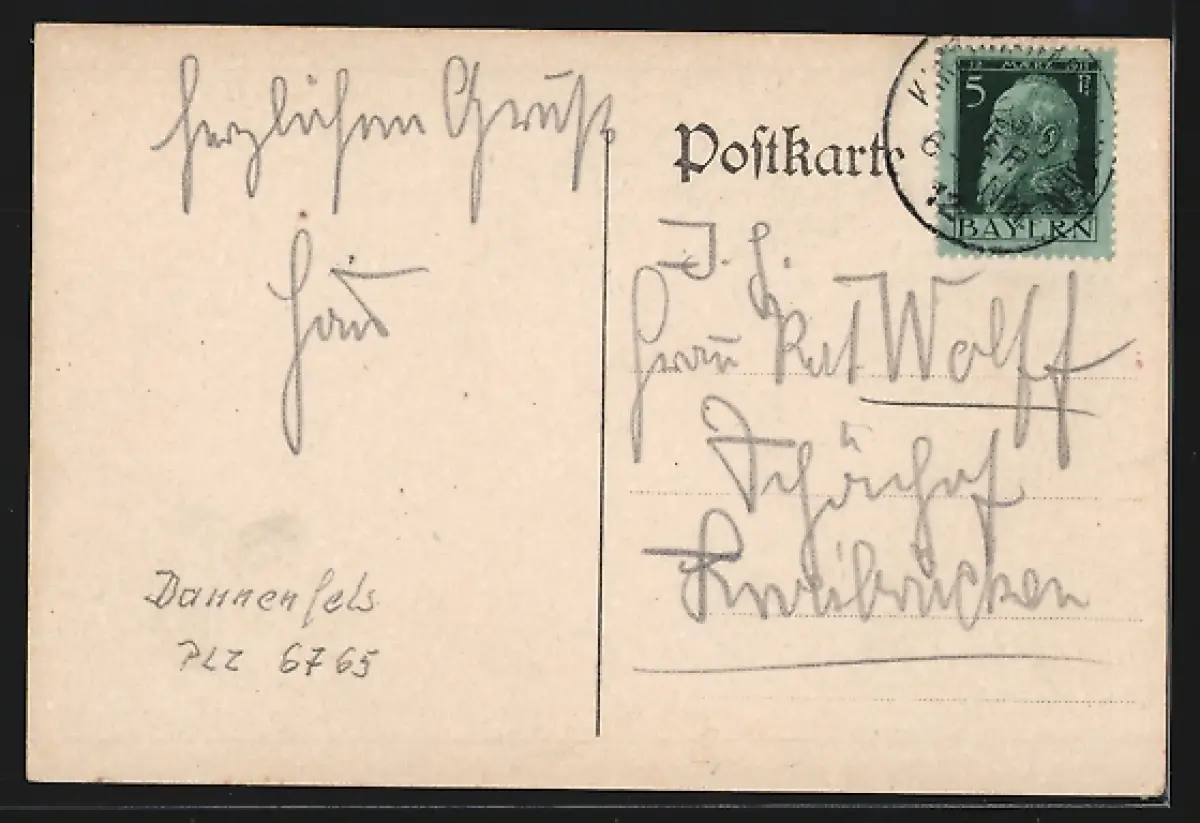 herzlichen Gruß
Dannenfels
PLZ 6765
Postkarte
12. MÄRZ 1911
5 Pf
BAYERN
12
I. H.
Frau Rat Wolff
Schönhof
Zweibrücken